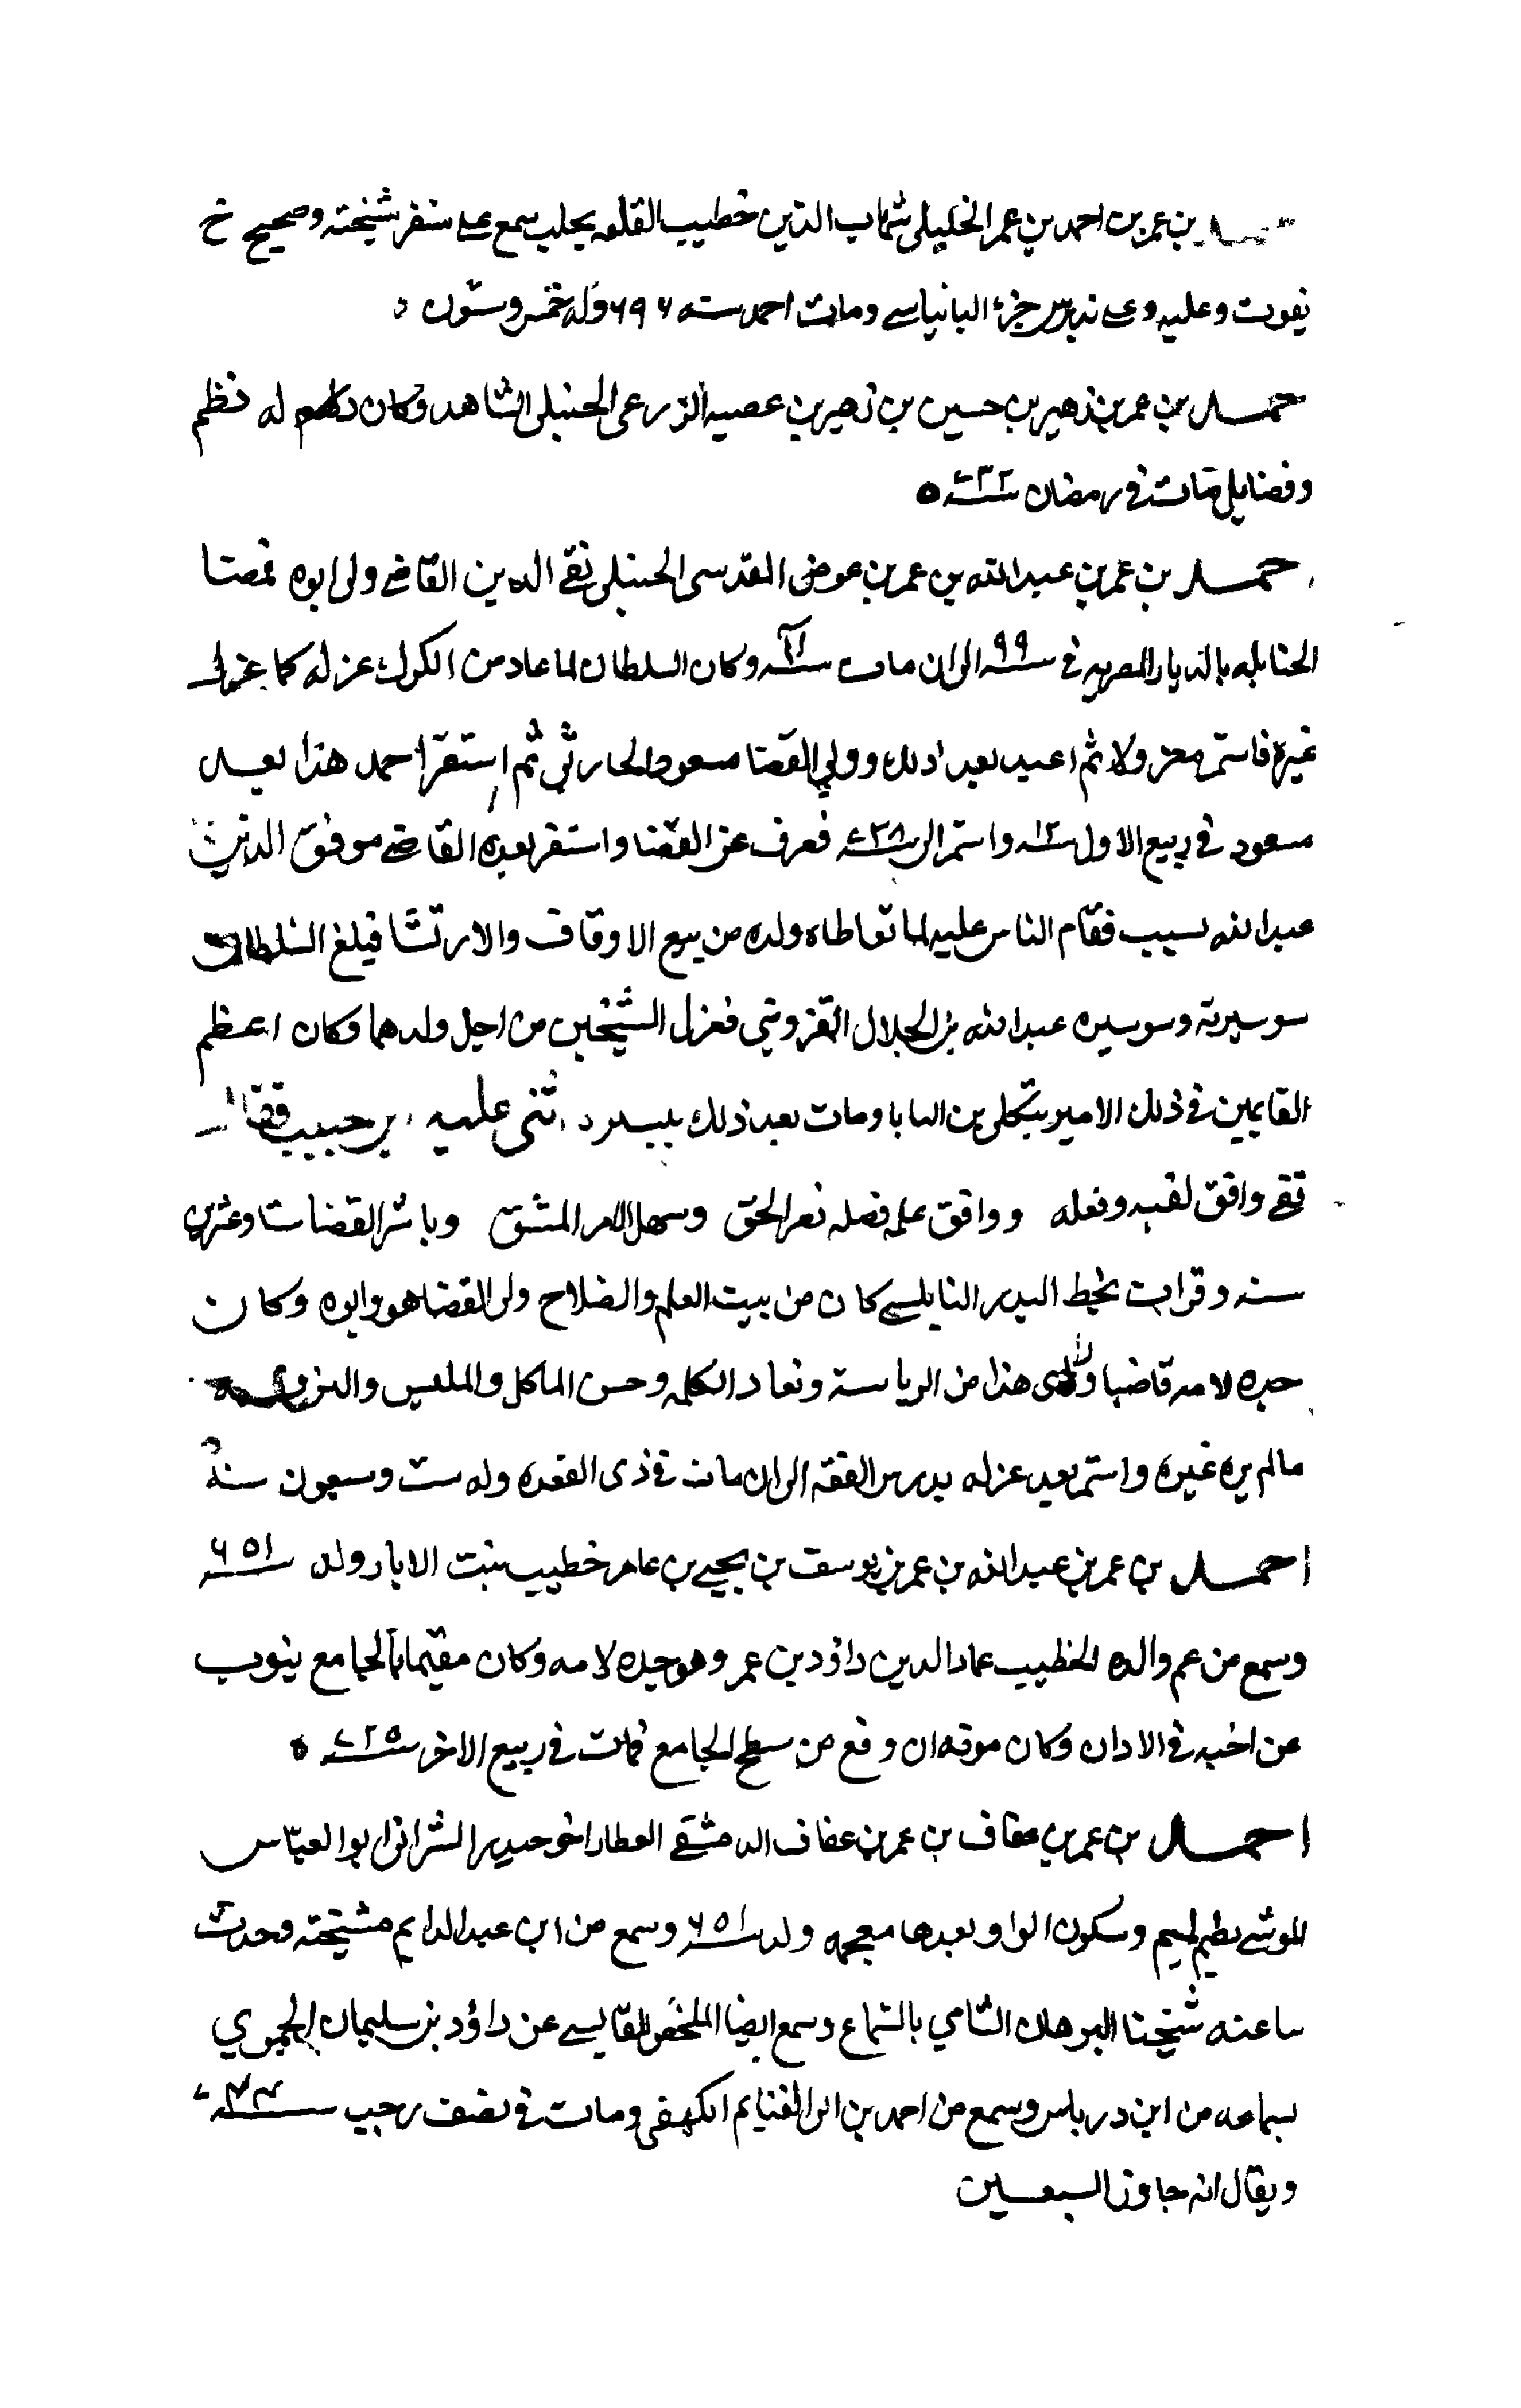 بن عمر بن احمد بن عمر الخليلى شهاب الدين خطيب القلعه بحلب سمع على سنقر مشيخته وصحيح خ
بفوت وعليه وعلى بيبرس جزء البانياسى ومات احمد سنه ٦٩٦ وله خمس وستون
احمد بن عمر بن زهير بن حسين بن زهير بن عصيه الزرعى الحنبلى الشاهد وكان له نظم
وفضايل مات فى رمضان سنه ٧٣٢
احمد بن عمر بن عبد الله بن عمر بن عوض المقدسى الحنبلى تقى الدين القاضى ولى ابوه قضا
الحنابله بالديار المصريه فى سنه ٩٩ الى ان مات سنه وكان السلطان لما عاد من الكرك عزله كما عزل
غيره فاستمر معزولا ثم اعيد بعد ذلك وولى القضا مسعود الحارثى ثم استقر احمد هذا بعد
مسعود فى ربيع الاول سنه ١٢ واستمر الى سنه ٧٣٨ فصرف عن القضا واستقر بعده القاضى موفق الدين
عبد الله بسبب فقام الناس عليه لما تعاطاه ولده من بيع الاوقاف والارتشا فبلغ السلطان
سو سيرته وسو سيره عبد الله بن الجلال القزوينى فعزل الشيخين من اجل ولدهما وكان اعظم
القايمين فى ذلك الامير بن البابا ومات بعد ذلك اثنى عليه ابن حبيب فقال
تقى وافق لقبه وفعله ووافق علمه فضله نصر الحق وسهل الامر المشق وباشر القضا ستا وعشرين
سنه وقرات بخط البدر النابلسى كان من بيت العلم والصلاح ولى القضا هو وابوه وكان
جده لامه قاضيا وراى هذا من الرياسة ونفاد الكلمه وحسن الماكل والملبس والتزين
مالم يره غيره واستمر بعد عزله يدرس الفقه الى ان مات فى ذى القعده وله ست وسبعون سنة
احمد بن عمر بن عبد الله بن عمر بن يوسف بن يحيى بن عامر خطيب بيت الابار ولد سنه ٦٥١
وسمع من عم والده الخطيب عماد الدين داؤد بن عمر وهو جده لامه وكان مقيما بالجامع ينوب
عن اخيه فى الاذان وكان موته ان وقع من سطح الجامع فمات فى ربيع الاخر سنه ٧٢٥
احمد بن عمر بن عفاف بن عمر بن عفاف الدمشقى العطار اخو ابو العباس
الموشى بضم الميم وسكون الواو بعدها معجمه ولد سنه ٦٥١ وسمع من ابن عبد الدايم مشيخته وحدث
ساعنه شيخنا البرهان الشامى بالسماع وسمع ايضا الملخص للقابسى عن داؤد بن سليمان
بسماعه من ابن درباس وسمع من احمد بن ابى الغنايم الكهفى ومات فى نصف رجب سنه ٧٣٣
ويقال انه جاوز السبعين